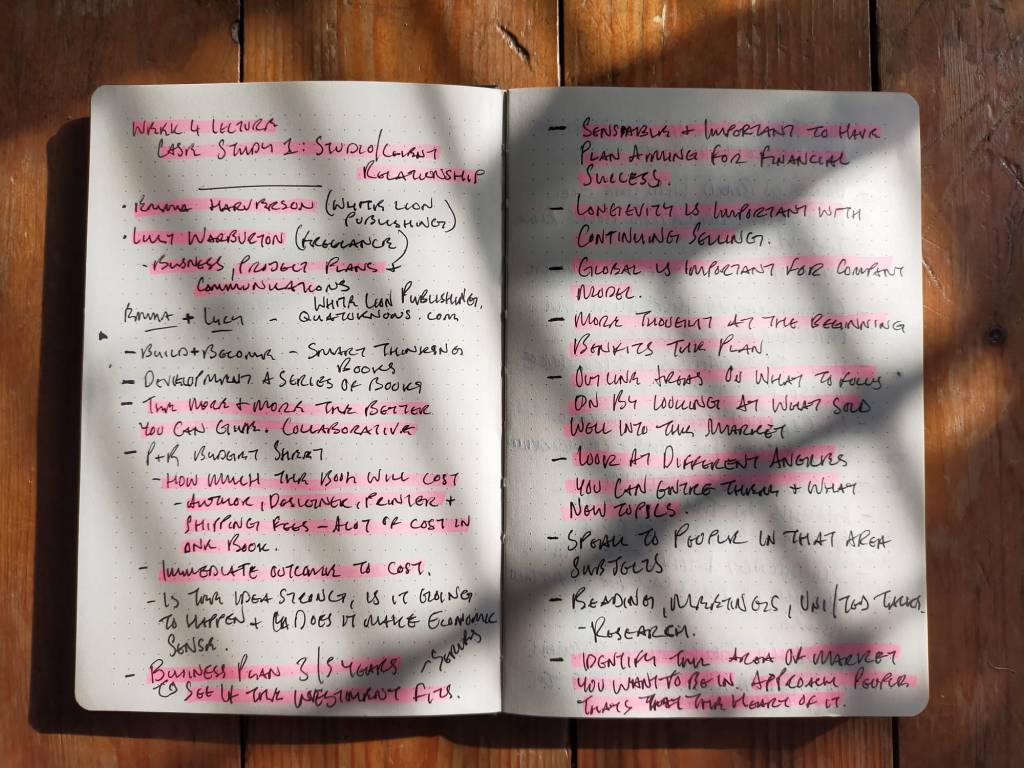 WEEK 4 LECTURE
CASE STUDY 1: STUDIO/CLIENT
RELATIONSHIP
• EMMA HARVERSON (WHITE LION
PUBLISHING)
• LUCY WARBURTON (FREELANCE)
- BUSINESS, PROJECT PLANS +
COMMUNICATIONS
EMMA + LUCY - WHITE LION PUBLISHING,
QUATOKNOWS.COM
- BUILD + BECOME - SMART THINKING
BOOKS
- DEVELOPMENT A SERIES OF BOOKS
- THE MORE + MORE THE BETTER
YOU CAN GIVE. COLLABORATIVE
- P+R BUDGET SHEET
- HOW MUCH THE BOOK WILL COST
- AUTHOR, DESIGNER, PRINTER +
SHIPPING FEES - ALOT OF COST IN
ONE BOOK.
- IMMEDIATE OUTCOME TO COST.
- IS THE IDEA STRONG, IS IT GOING
TO HAPPEN + DOES IT MAKE ECONOMIC
SENSE.
- BUSINESS PLAN 3/5 YEARS - SERIES
TO SEE IF THE INVESTMENT FITS.
- SENSIABLE + IMPORTANT TO HAVE
PLAN AIMING FOR FINANCIAL
SUCCESS.
- LONGEVITY IS IMPORTANT WITH
CONTINUING SELLING.
- GLOBAL IS IMPORTANT FOR COMPANY
MODEL.
- MORE THOUGHT AT THE BEGINNING
BENEFITS THE PLAN.
- OUTLINE AREAS ON WHAT TO FOCUS
ON BY LOOKING AT WHAT SOLD
WELL INTO THE MARKET
- LOOK AT DIFFERENT ANGLES
YOU CAN ENTIRE THESE + WHAT
NEW TOPICS.
- SPEAK TO PEOPLE IN THAT AREA
SUBJECTS
- READING, MEETINGS, UNI/TED TALKS
- RESEARCH.
- IDENTIFY THE AREA OF MARKET
YOU WANT TO BE IN. APPROACH PEOPLE
THATS THAT THE HEART OF IT.